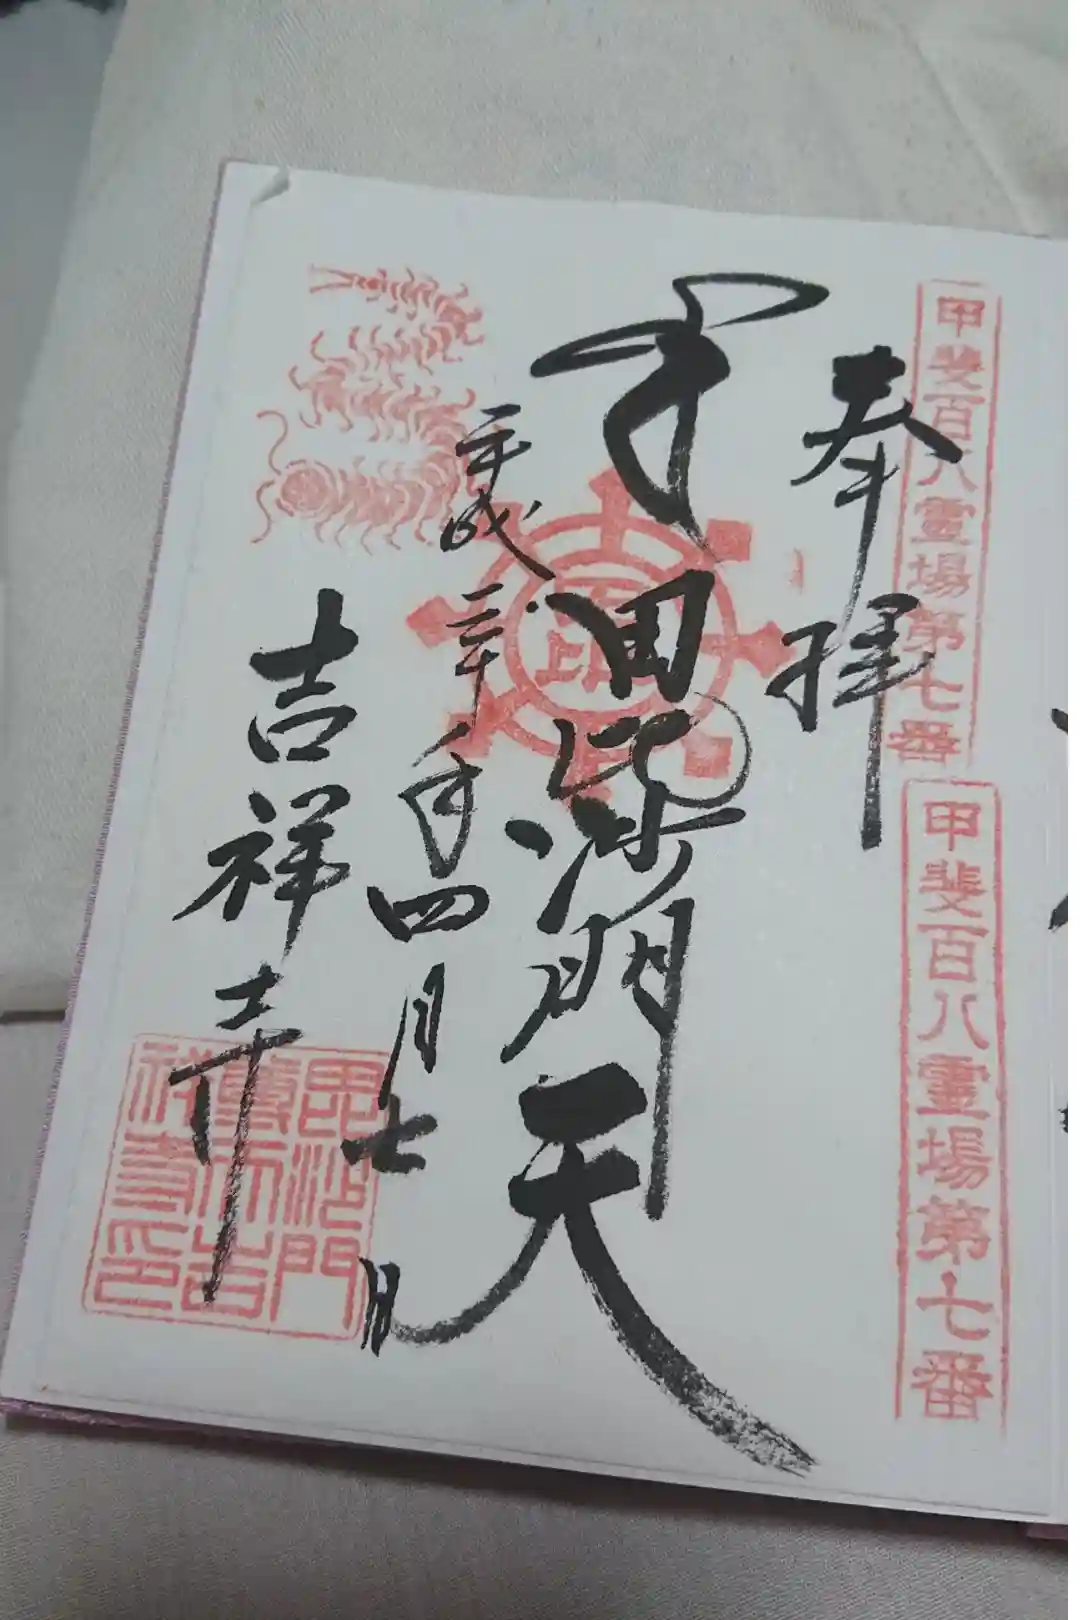 甲斐百八霊場第七番
甲斐百八霊場第七番
奉拝
毘沙門天
平成三十年四月七日
吉祥寺
毘沙門
尊天吉
祥寺印